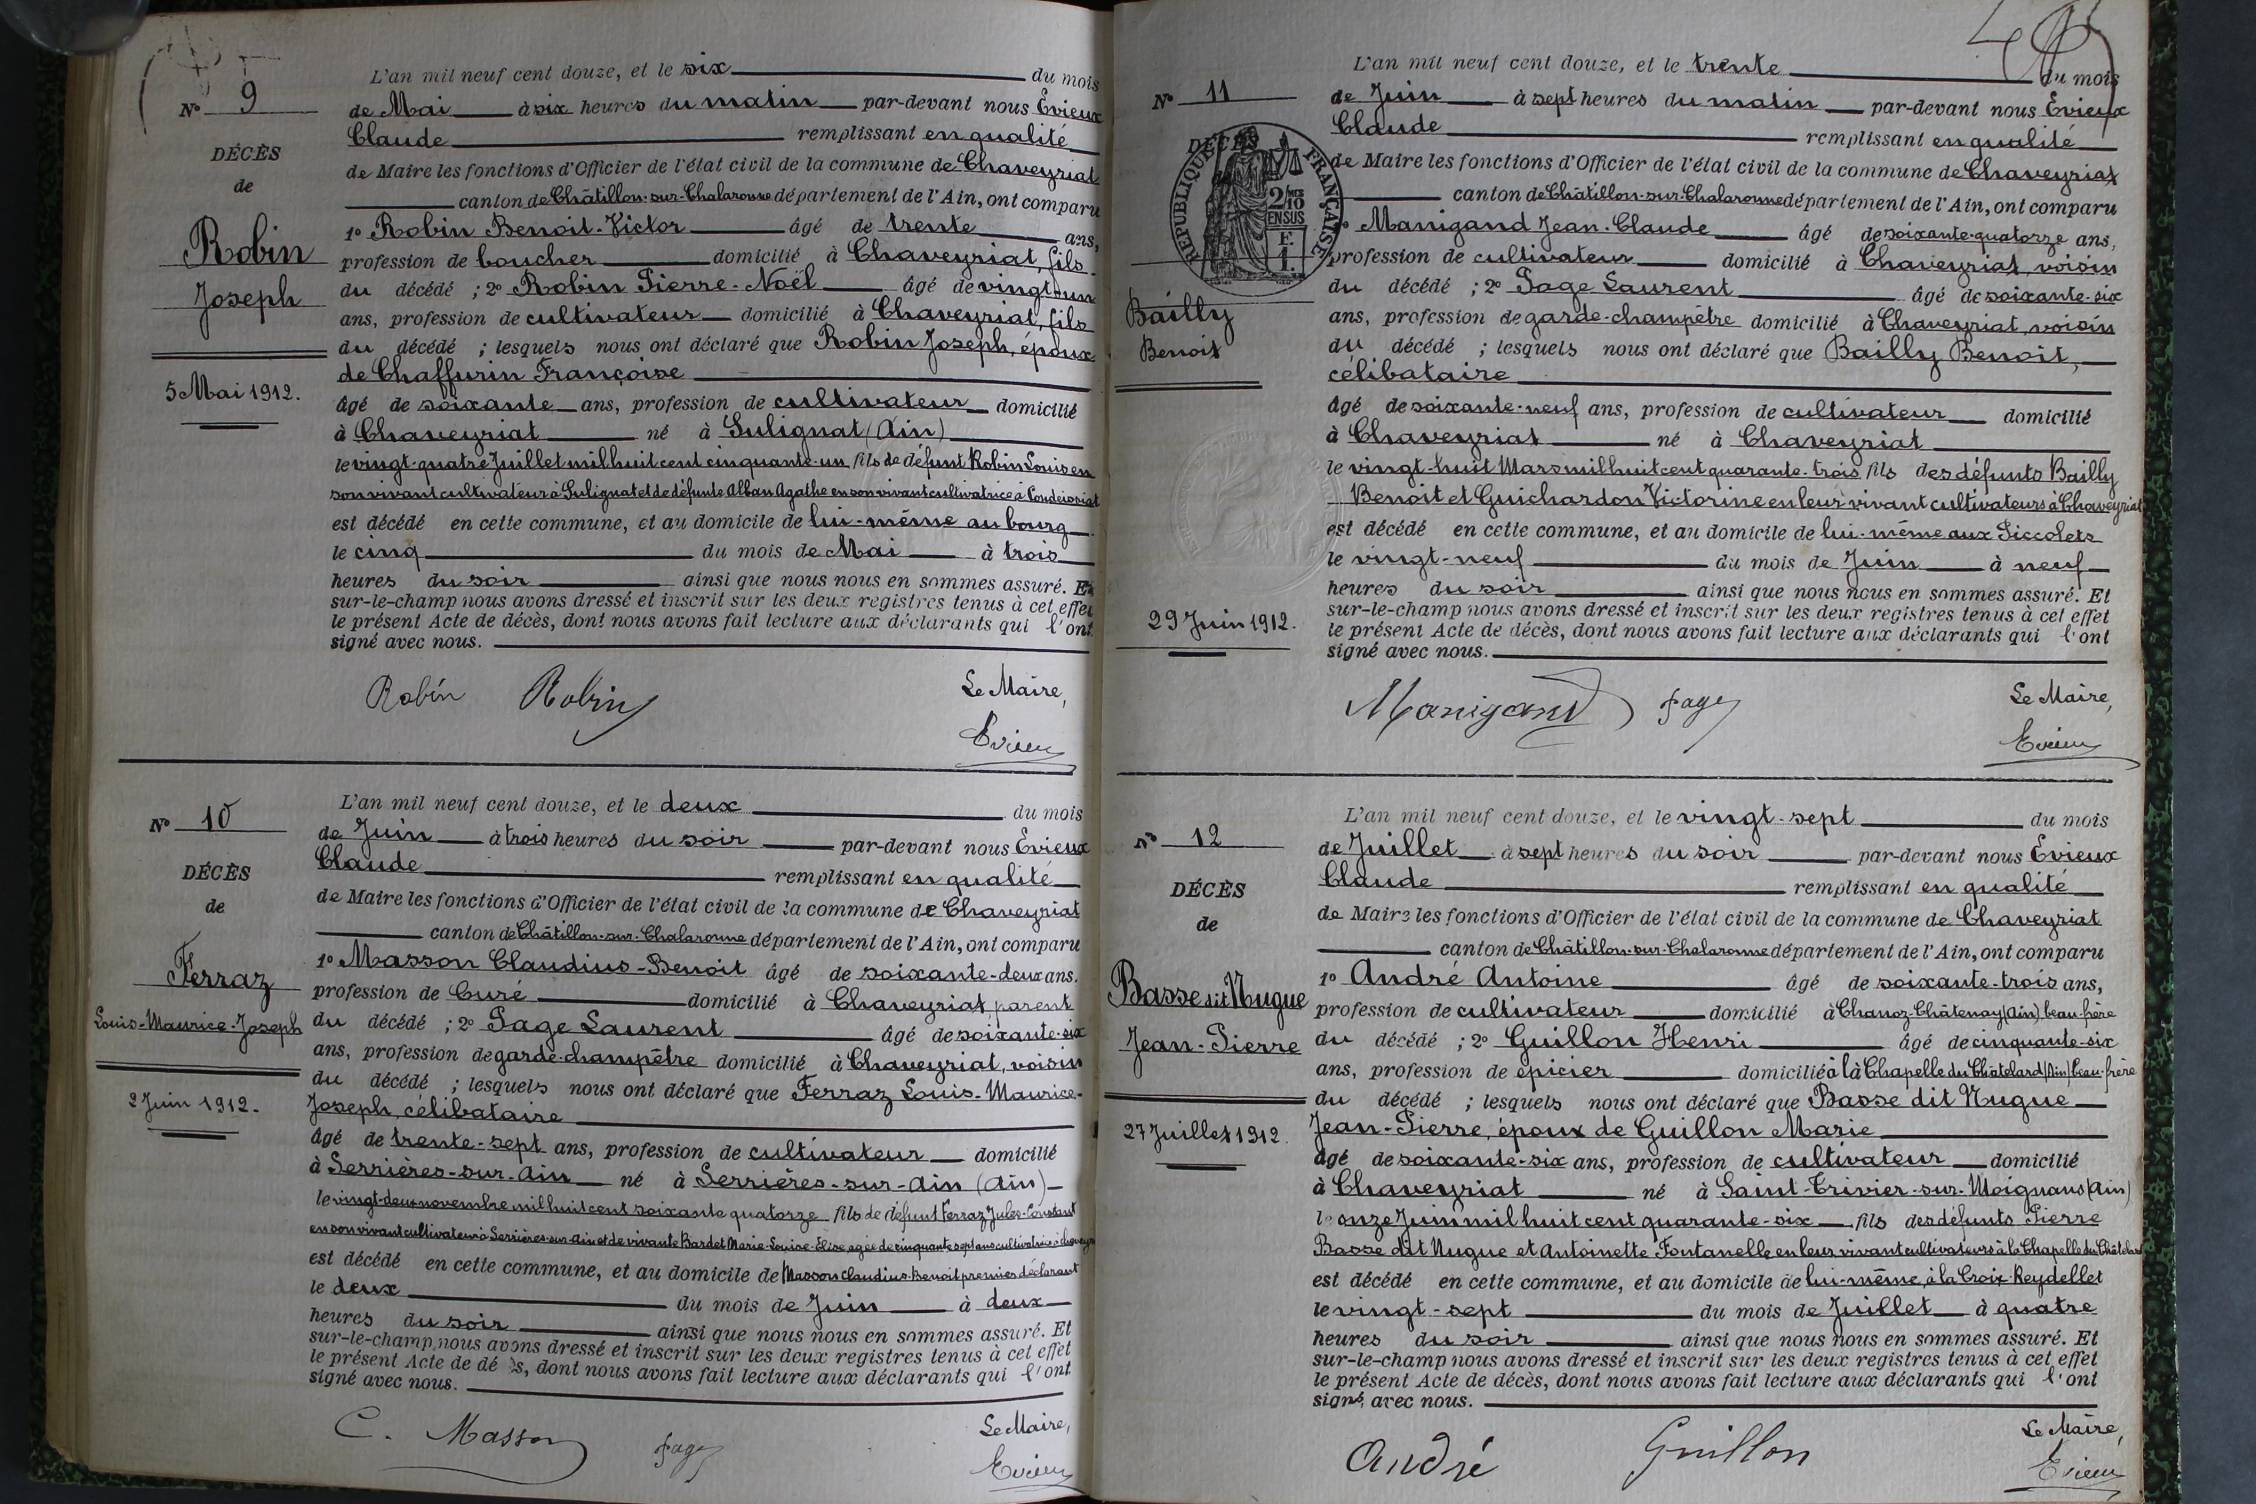 N° 9
DÉCÈS
de
Robin
Joseph
5 Mai 1912.
L'an mil neuf cent douze, et le six du mois
de Mai à six heures du matin par-devant nous Evieux
Claude remplissant en qualité
de Maire les fonctions d'Officier de l'état civil de la commune de Chaveyriat
canton de Châtillon-sur-Chalaronne département de l'Ain, ont comparu
1° Robin Benoit-Victor âgé de trente ans,
profession de boucher domicilié à Chaveyriat, fils
du décédé ; 2° Robin Pierre-Noël âgé de vingt-un
ans, profession de cultivateur domicilié à Chaveyriat, fils
du décédé ; lesquels nous ont déclaré que Robin Joseph, époux
de Chaffurin Françoise
âgé de soixante ans, profession de cultivateur domicilié
à Chaveyriat né à Sulignat (Ain)
le vingt-quatre Juillet mil huit cent cinquante-un fils de défunt Robin Louis en
son vivant cultivateur à Sulignat et de défunte Alban Agathe en son vivant cultivatrice à Condeissiat
est décédé en cette commune, et au domicile de lui-même au bourg
le cinq du mois de Mai à trois
heures du soir ainsi que nous nous en sommes assuré. Et
sur-le-champ nous avons dressé et inscrit sur les deux registres tenus à cet effet
le présent Acte de décès, dont nous avons fait lecture aux déclarants qui l'ont
signé avec nous.
Robin Robin
Le Maire,
Evieux
N° 10
DÉCÈS
de
Ferraz
Louis-Maurice-Joseph
2 Juin 1912.
L'an mil neuf cent douze, et le deux du mois
de Juin à trois heures du soir par-devant nous Evieux
Claude remplissant en qualité
de Maire les fonctions d'Officier de l'état civil de la commune de Chaveyriat
canton de Châtillon-sur-Chalaronne département de l'Ain, ont comparu
1° Masson Claudius-Benoit âgé de soixante-deux ans.
profession de Curé domicilié à Chaveyriat, parent
du décédé ; 2° Page Laurent âgé de soixante-six
ans, profession de garde-champêtre domicilié à Chaveyriat, voisin
du décédé ; lesquels nous ont déclaré que Ferraz Louis-Maurice-
Joseph, célibataire
âgé de trente-sept ans, profession de cultivateur domicilié
à Serrières-sur-Ain né à Serrières-sur-Ain (Ain)
le vingt-deux novembre mil huit cent soixante quatorze fils de défunt Ferraz Jules-Constant
en son vivant cultivateur à Serrières-sur-Ain et de vivante Bardet Marie-Louise-Elise agée de cinquante sept ans cultivatrice à
est décédé en cette commune, et au domicile de Masson Claudius-Benoit premier déclarant
le deux du mois de Juin à deux
heures du soir ainsi que nous nous en sommes assuré. Et
sur-le-champ nous avons dressé et inscrit sur les deux registres tenus à cet effet
le présent Acte de dé s, dont nous avons fait lecture aux déclarants qui l'ont
signé avec nous.
C. Masson Page
Le Maire,
Evieux
N° 11
DÉCÈS
RÉPUBLIQUE FRANÇAISE
2/10 EN SUS
Bailly
Benoit
29 Juin 1912.
L'an mil neuf cent douze, et le trente du mois
de Juin à sept heures du matin par-devant nous Evieux
Claude remplissant en qualité
de Maire les fonctions d'Officier de l'état civil de la commune de Chaveyriat
canton de Châtillon-sur-Chalaronne département de l'Ain, ont comparu
Manigand Jean-Claude âgé de soixante-quatorze ans,
profession de cultivateur domicilié à Chaveyriat, voisin
du décédé ; 2° Page Laurent âgé de soixante-six
ans, profession de garde-champêtre domicilié à Chaveyriat, voisin
du décédé ; lesquels nous ont déclaré que Bailly Benoit,
célibataire
âgé de soixante-neuf ans, profession de cultivateur domicilié
à Chaveyriat né à Chaveyriat
le vingt-huit Mars mil huit cent quarante-trois fils des défunts Bailly
Benoit et Guichardon Victorine en leur vivant cultivateurs à Chaveyriat
est décédé en cette commune, et au domicile de lui-même aux Piccolets
le vingt-neuf du mois de Juin à neuf
heures du soir ainsi que nous nous en sommes assuré. Et
sur-le-champ nous avons dressé et inscrit sur les deux registres tenus à cet effet
le présent Acte de décès, dont nous avons fait lecture aux déclarants qui l'ont
signé avec nous.
Manigand Page
Le Maire,
Evieux
N° 12
DÉCÈS
de
Basse dit Nugue
Jean-Pierre
27 Juillet 1912.
L'an mil neuf cent douze, et le vingt-sept du mois
de Juillet à sept heures du soir par-devant nous Evieux
Claude remplissant en qualité
de Maire les fonctions d'Officier de l'état civil de la commune de Chaveyriat
canton de Châtillon-sur-Chalaronne département de l'Ain, ont comparu
1° André Antoine âgé de soixante-trois ans,
profession de cultivateur domicilié à Chanoz-Châtenay (Ain) beau-frère
du décédé ; 2° Guillon Henri âgé de cinquante-six
ans, profession de épicier domicilié à la Chapelle du Châtelard (Ain) beau-frère
du décédé ; lesquels nous ont déclaré que Basse dit Nugue
Jean-Pierre, époux de Guillon Marie
âgé de soixante-six ans, profession de cultivateur domicilié
à Chaveyriat né à Saint-Trivier-sur-Moignans (Ain)
le onze Juin mil huit cent quarante-six fils des défunts Pierre
Basse dit Nugue et Antoinette Fontanelle en leur vivant cultivateurs à la Chapelle du Châtelard
est décédé en cette commune, et au domicile de lui-même, à la Croix-Reydellet
le vingt-sept du mois de Juillet à quatre
heures du soir ainsi que nous nous en sommes assuré. Et
sur-le-champ nous avons dressé et inscrit sur les deux registres tenus à cet effet
le présent Acte de décès, dont nous avons fait lecture aux déclarants qui l'ont
signé, avec nous.
André Guillon
Le Maire,
Evieux